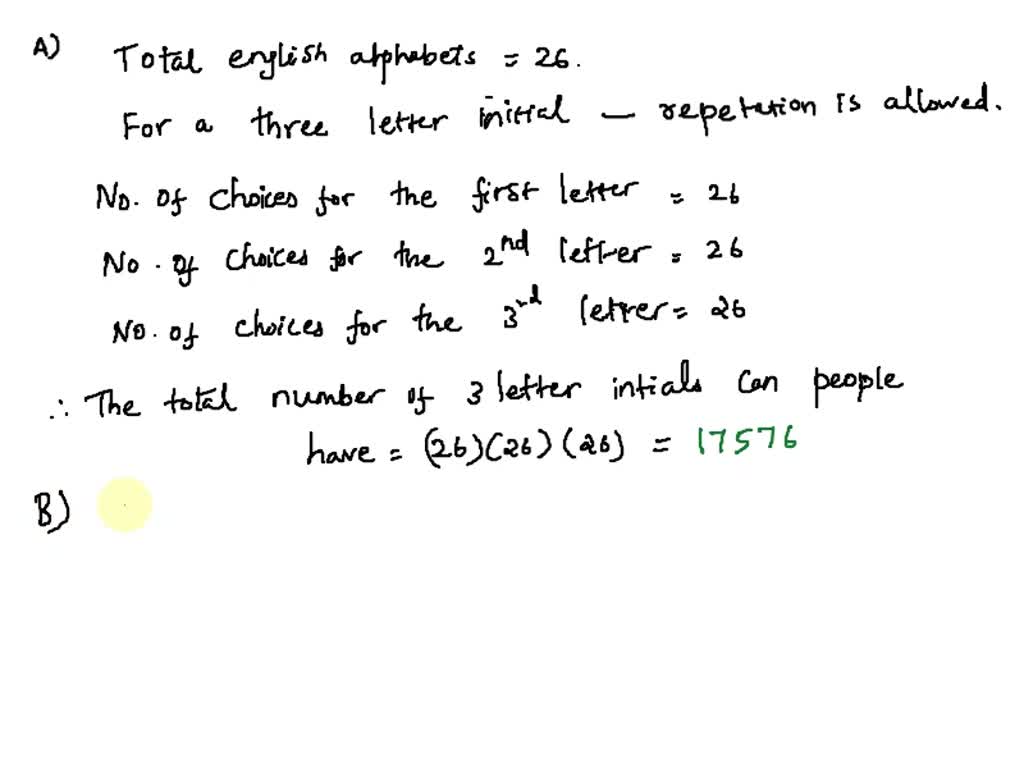 A) Total english alphabets = 26.
For a three letter initial – repetation is allowed.
No. of choices for the first letter = 26
No. of choices for the 2nd letter = 26
No. of choices for the 3rd letter = 26
∴ The total number of 3 letter intials can people
have = (26)(26)(26) = 17576
B)